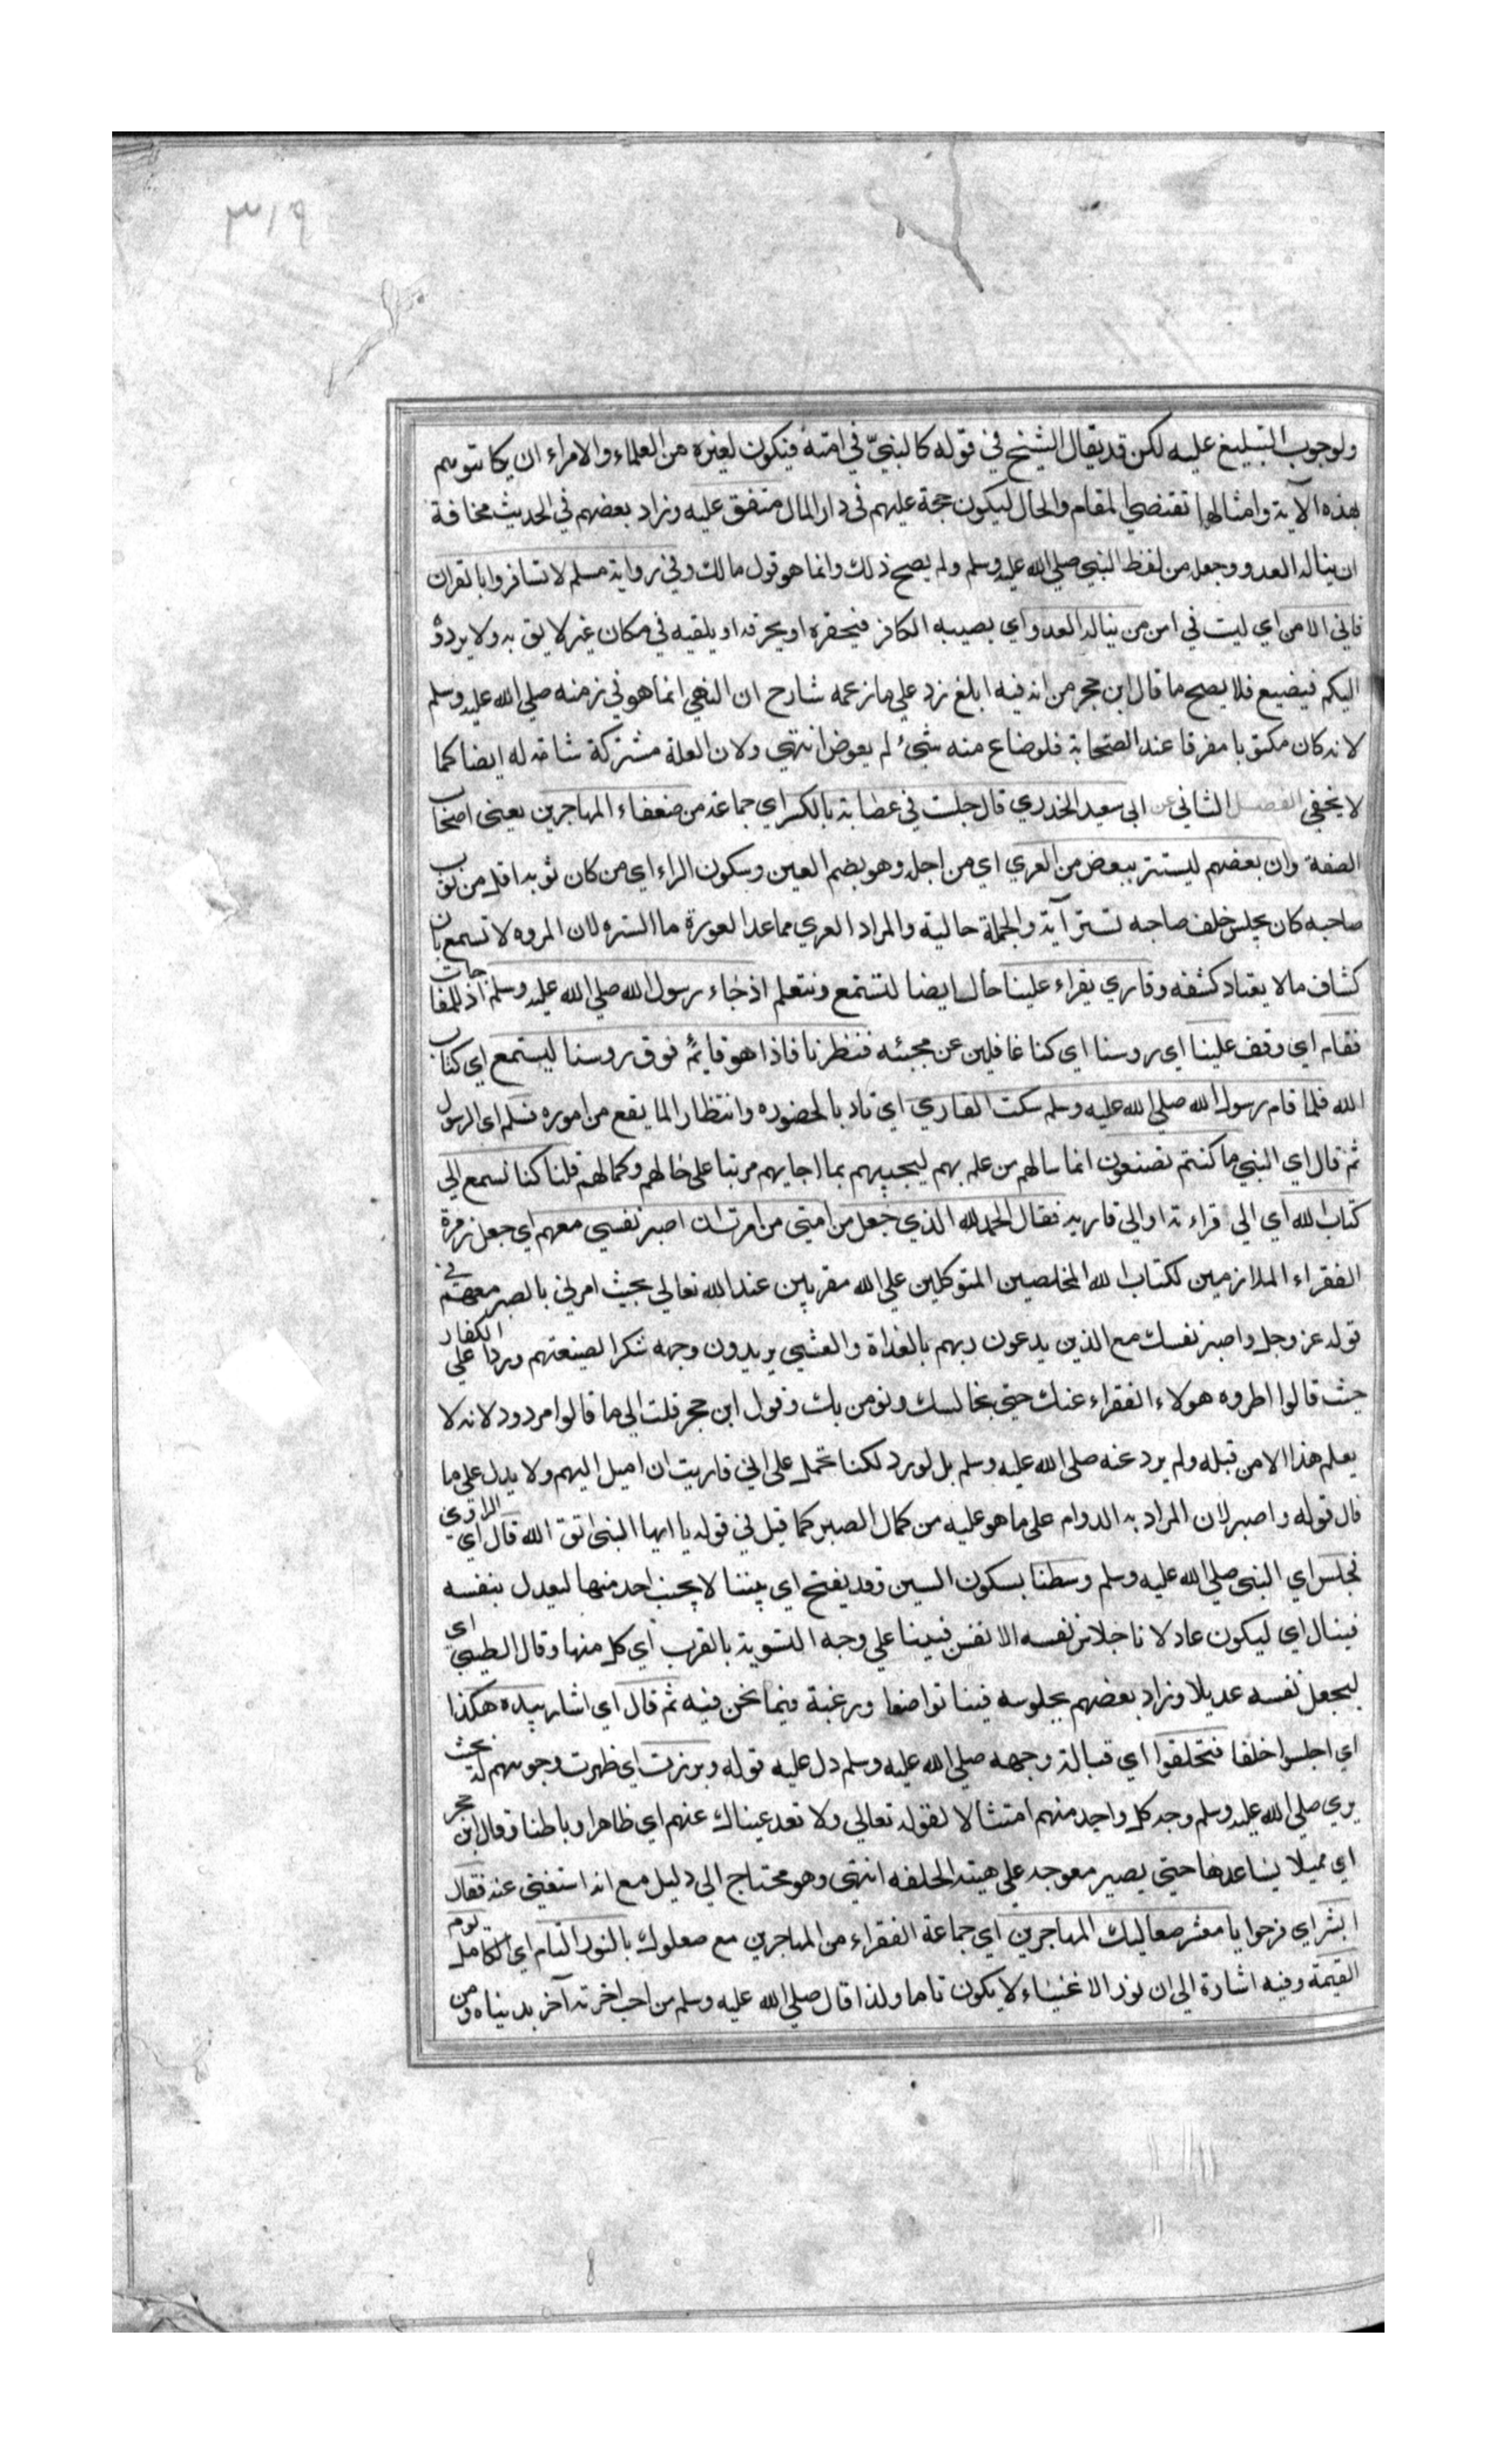 ٣١٩
ولوجوب التبليغ عليه لكن قد يقال الشيخ في قوله كالنبيّ في امته فيكون لغيره من العلماء والامراء ان يكاتبوهم
بهذه الآية وامثالها تقتضي المقام والحال ليكون حجة عليهم في دار المال متفق عليه وزاد بعضهم في الحديث مخافة
ان يناله العدو وجعل من لفظ النبي صلي الله عليه وسلم ولم يصح ذلك وانما هو قول مالك وفي رواية مسلم لا تسافروا بالقران
فاني لا امن اي ليت في امن من يناله العدو اي يصيبه الكافر فيحقره او يحرقه او يلقيه في مكان غير لايق به ولا يردوه
اليكم فيضيع فلا يصح ما قال ابن حجر من انه فيه ابلغ رد علي ما زعمه شارح ان النهي انما هو في زمنه صلي الله عليه وسلم
لانه كان مكتوبا مفرقا عند الصحابة فلو ضاع منه شيئ لم يعوض انتهي ولان العلة مشتركة شاملة له ايضا كما
لا يخفي الفصل الثاني عن ابي سعيد الخدري قال جلت في عصابة بالكسر اي جماعة من ضعفاء المهاجرين يعني اصحاب
الصفة وان بعضهم ليستتر ببعض من العري اي من اجله وهو بضم العين وسكون الراء اي من كان ثوبه اقل من ثوب
صاحبه كان يجلس خلف صاحبه تسترا به والجملة حالية والمراد العري مما عدا العورة ما الستره لان المروه لا تسمع بان
كشاف ما لا يعتاد كشفه وقاري يقراء علينا حال ايضا لنستمع ونتعلم اذ جاء رسول الله صلي الله عليه وسلم اذ للمفاجات
فقام اي وقف علينا اي روسنا اي كنا غافلين عن مجيئه فنظرنا فاذا هو قايم فوق روسنا ليستمع اي كتاب
الله فلما قام رسول الله صلي الله عليه وسلم سكت القاري اي تادبا لحضوره وانتظارا لما يقع من اموره فسلم اي الرسول
ثم قال اي النبي ما كنتم تصنعون انما سالهم من علم بهم ليجيبهم بما اجابهم مرتبا علي حالهم وكمالهم قلنا كنا نسمع الي
كتاب الله اي الي قراءته او الي قاريه فقال الحمد لله الذي جعل من امتي من امرت ان اصبر نفسي معهم اي جعل زمرة
الفقراء الملازمين لكتاب الله المخلصين المتوكلين علي الله مقربين عند الله تعالي بحيث امرني بالصبر معهم في
قوله عز وجل واصبر نفسك مع الذين يدعون ربهم بالغداة والعشي يريدون وجهه شكرا لصنعتهم وردا علي الكفار
حيث قالوا اطروه هولاء الفقراء عنك حتي نخالسك ونومن بك وقول ابن حجر قلت الي ما قالوا مردود لانه لا
يعلم هذا الا من قبله ولم يرد عنه صلي الله عليه وسلم بل لو رد لكنا نحمله علي اني قاربت ان اميل اليهم ولا يدل علي ما
قال قوله واصبر لان المراد به الدوام علي ما هو عليه من كمال الصبر كما قيل في قوله يا ايها النبي اتق الله قال اي الراوي
فجلس اي النبي صلي الله عليه وسلم وسطنا بسكون السين وقد يفتح اي بيننا لا بجنب احد منها ليعدل بنفسه
فينا قال اي ليكون عادلا نفسه الانفس فينا علي وجه التسوية بالقرب اي كل منها وقال الطيبي اي
ليجعل نفسه عديلا وزاد بعضهم بجلوسه فيننا تواضعا ورغبة فيما نحن فيه ثم قال اي اشار بيده هكذا
اي اجلسوا خلفا فتحلقوا اي قبالة وجهه صلي الله عليه وسلم دل عليه قوله وبرزت اي ظهرت وجوههم له بحيث
يري صلي الله عليه وسلم وجه كل واحد منهم امتثالا لقوله تعالي ولا تعد عيناك عنهم اي ظاهرا وباطنا وقال ابن حجر
اي ميلا حتي يصير معوجه علي هيئة الحلقه انتهي وهو محتاج الي دليل مع انه استغني عنه فقال
ابشر اي فرحوا يا معشر صعاليك المهاجرين اي جماعة الفقراء من المهاجرين مع صعلوك بالنور التام اي الكامل يوم
القيمة وفيه اشارة الي ان نور الاغنياء لا يكون تاما ولذا قال صلي الله عليه وسلم من احب اخرته آخر بدنياه ومن